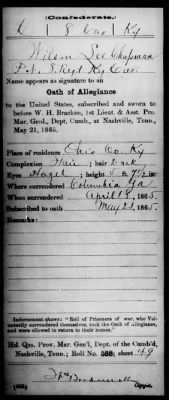 (Confederate.)
8 Cav Ky
Wilson Lee Chapman
Pvt 8 Regt Ky Cav
Name appears as signature to an
Oath of Allegiance
to the United States, subscribed and sworn to
before W. H. Bracken, 1st Lieut. & Asst. Pro.
Mar. Gen'l, Dept. Cumb., at Nashville, Tenn.,
May 21, 1865.
Place of residence Ohio Co. Ky
Complexion Fair; hair Dark
Eyes Hazel; height 5 ft. 7½ in.
Where surrendered Columbia Ga
When surrendered April 8, 1865.
Subscribed to oath May 21, 1865.
Remarks:
Indorsement shows: "Roll of Prisoners of war, who Vol-
untarily surrendered themselves, took the Oath of Allegiance,
and were allowed to return to their homes."
Hd. Qrs. Prov. Mar. Gen'l, Dept. of the Cumb'd,
Nashville, Tenn.; Roll No. 588; sheet 49
Copyist.